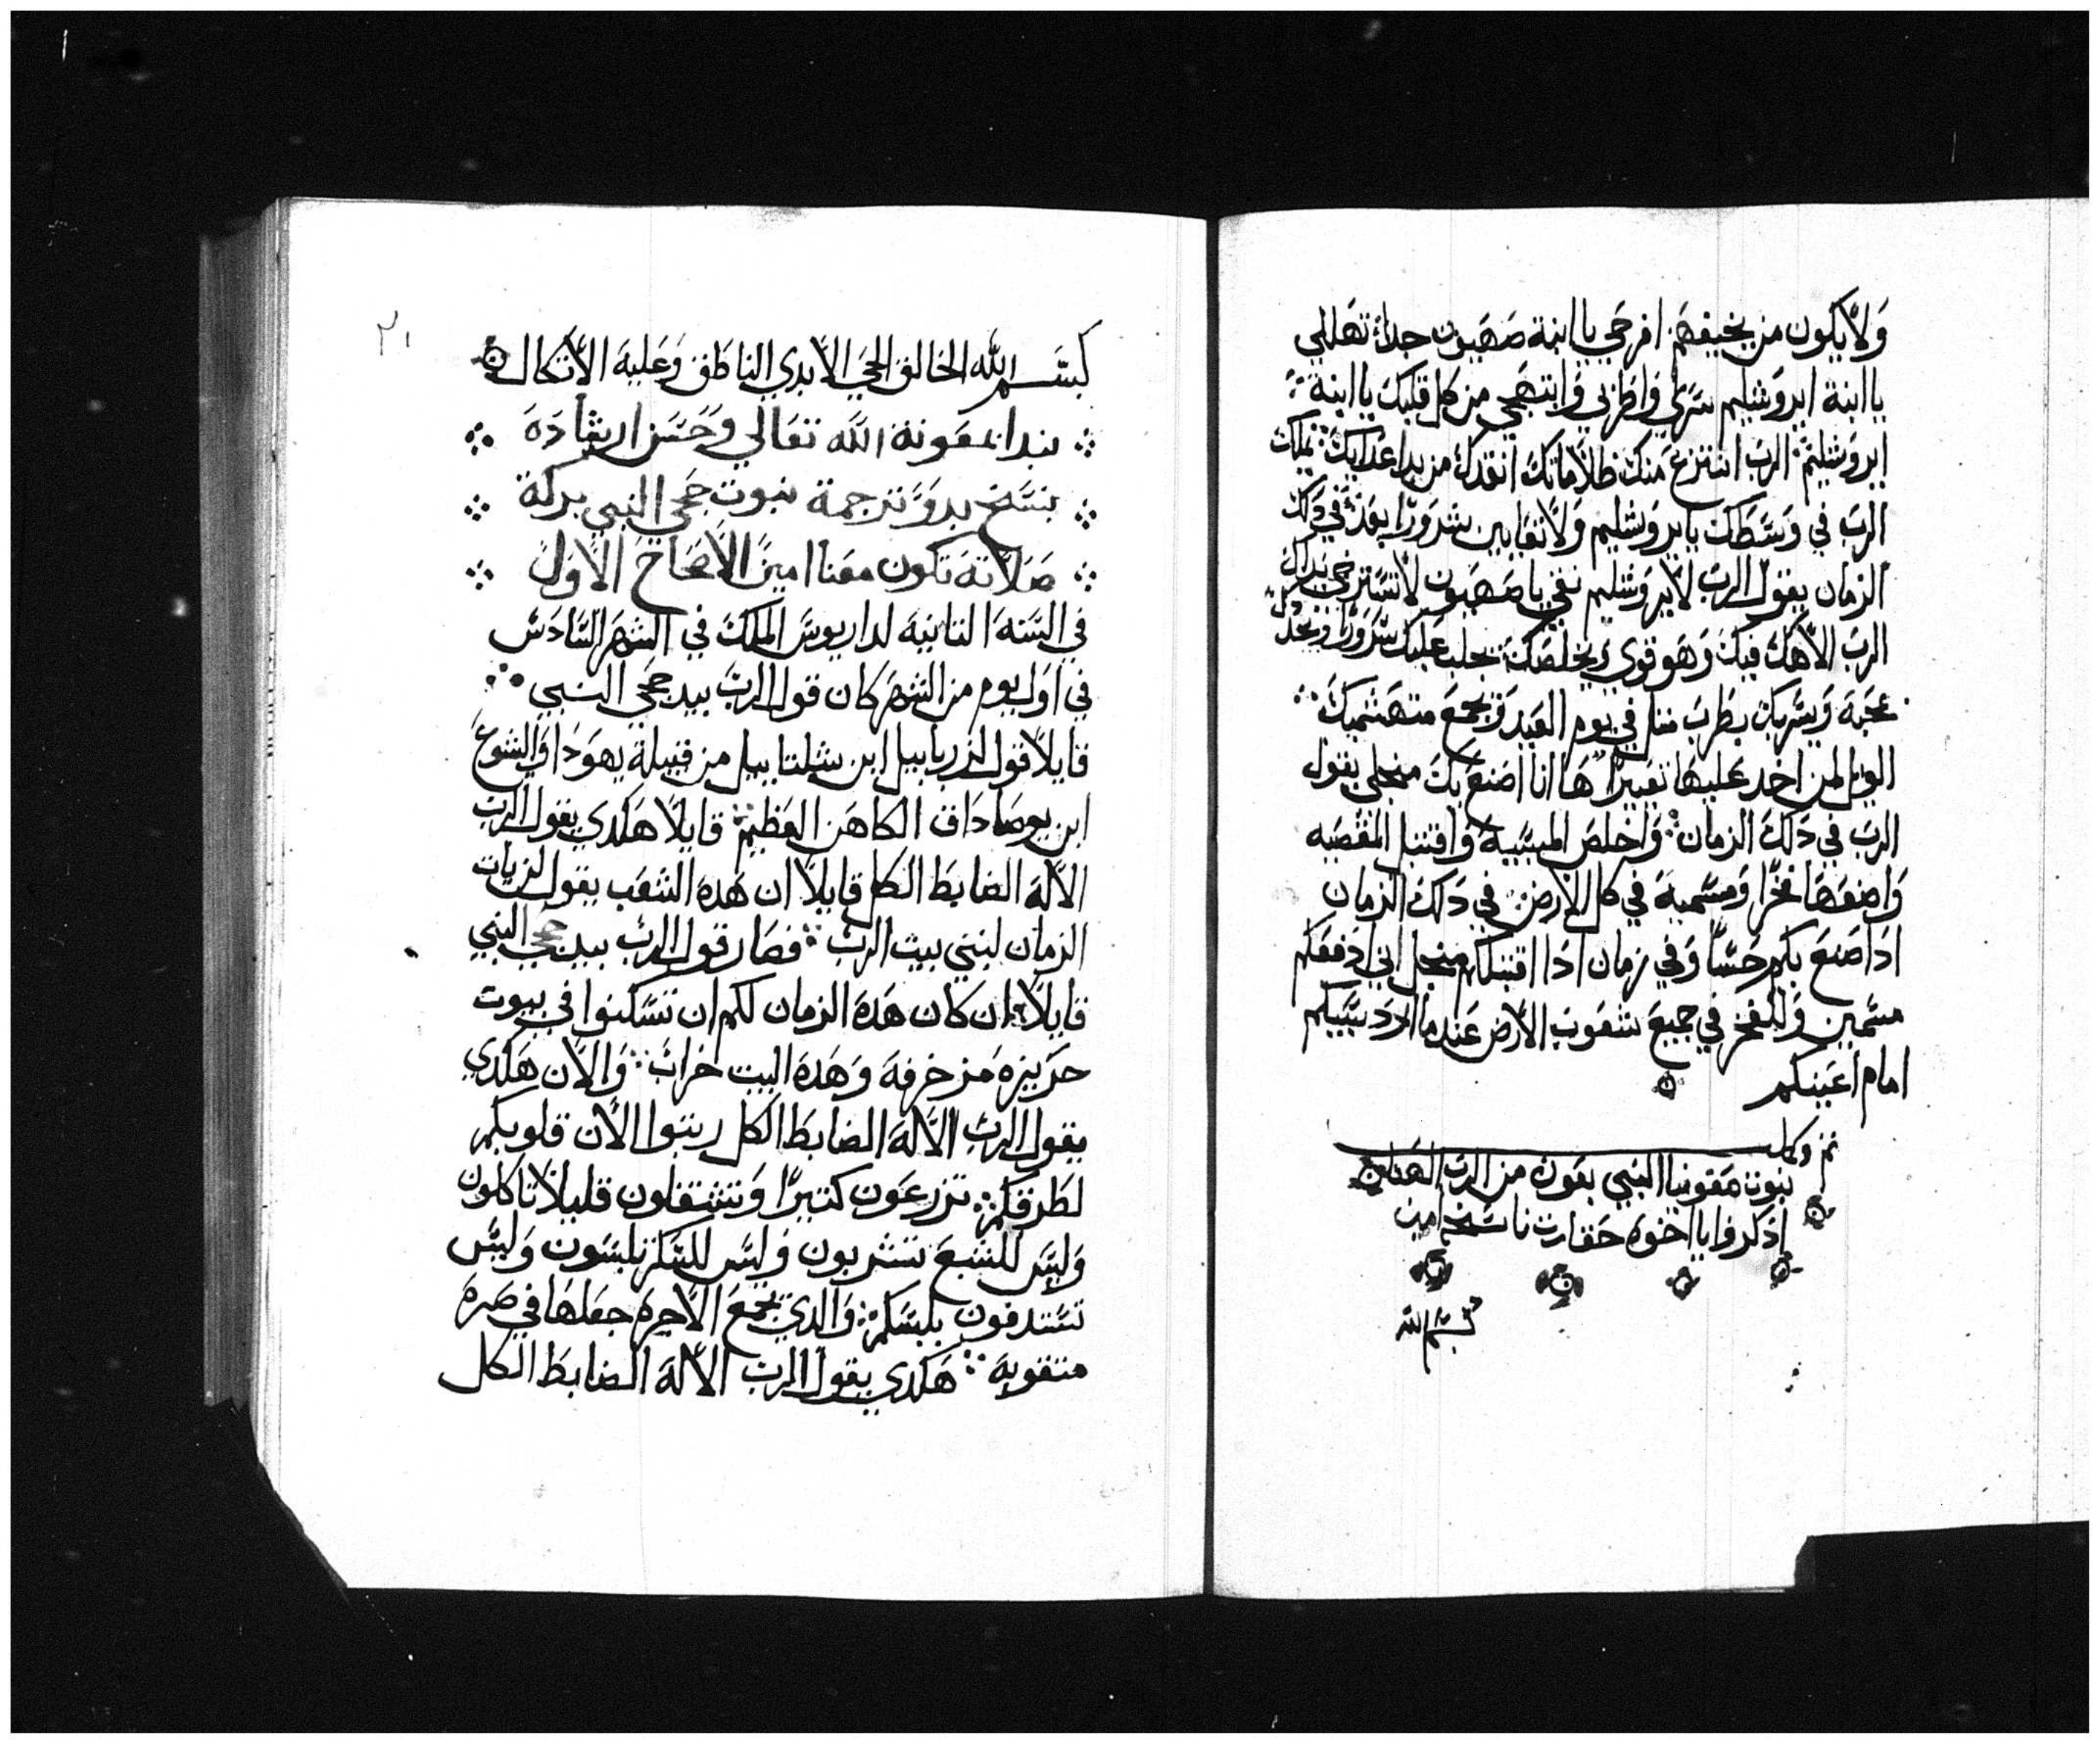 ولا يكون من يخيفهم افرحي يا ابنة صهيون جدا تهللي
يا ابنة ايروشليم سري واطربي وابتهجي من كل قلبك يا ابنة
ايروشليم الرب انتزع منك ظلاماتك انقدك من يد اعدايك يملك
الرب في وسطك يا يروشليم ولا تعاين شرورا بعد في دلك
الزمان يقول الرب لايروشليم تقي يا صهيون لا تسترخي يداك
الرب الاهك فيك وهو قوي يخلصك يجلب عليك سرورا
محبة ويسر بك بطرب متل في يوم العيد ويجمع متهشميك
الويل لمن اخد عليها تعييرا ها انا اصنع بك منجلي يقول
الرب في دلك الزمان واخلص المبية واقتبل المقصيه
واضعها فخرا ومسمية في كل الارض في دلك الزمان
ادا اصنع بكم حسنا وفي زمان ادا اقتبلكم منجل اني ادفعكم
مسمين وللفخر في جميع شعوب الارض عندما ارد سبيكم
امام اعينكم
تم وكمل
نبوت صفونيا النبي بعون من الرب
اذكروا يا اخوه حقارت ناسخه امين
بسم الله
٢١
بسم الله الخالق الحي الابدي الناطق وعليه الاتكال
نبدا بمعونة الله تعالي وحسن ارشاده
بنسخ بدو ترجمة نبوت حجي النبي بركة
صلاته تكون معنا امين الاصحاح الاول
في السنه التانيه لداريوس الملك في الشهر السادس
في اول يوم من الشهر كان قول الرب بيد حجي النبي
قايلا قول لزربابيل ابن شلتاييل من قبيلة يهودا واليشوع
ابن يوصاداق الكاهن العظيم قايلا هكدي يقول الرب
الاله الضابط الكل قايلا ان هده الشعب يقول لم يات
الزمان لنبني بيت الرب فصار قول الرب بيد حجي النبي
قايلا ان كان هده الزمان لكم ان تسكنوا في بيوت
مزخرفه وهده البيت خراب والان هكدي
يقول الرب الاله الضابط الكل رتبوا الان قلوبكم
لطرقكم تزرعون كتيرا وتشتغلون قليلا تاكلون
وليس للشبع تشربون وليس للسكر تلبسون وليس
تستدفون بلبسكم والدي يجمع الاجره جعلها في صرة
متقوبه هكدي يقول الرب الاله الضابط الكل